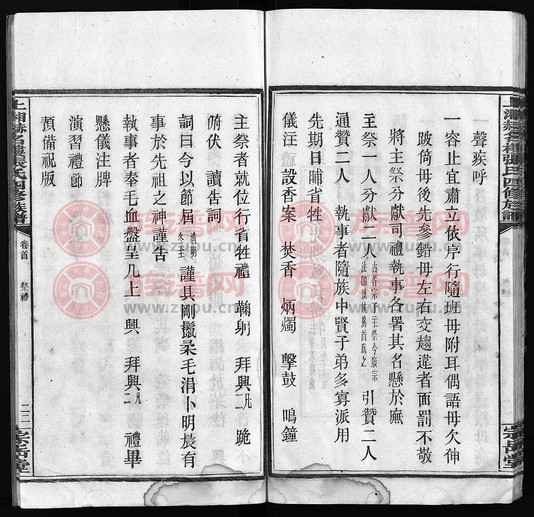 一聲疾呼
一容止宜肅立依序行隨班毋附耳偶語毋欠伸
跛倚毋後先參錯毋左右交趨違者面罰不敬
將主祭分獻司禮執事各署其名懸於廡
主祭一人分獻二人 引贊二人
通贊二人 執事者隨族中賢子弟多寡派用
先期日晡省牲
儀注 設香案 焚香 炳燭 擊鼓 鳴鐘
主祭者就位行省牲禮 鞠躬 拜興二凡 跪
俯伏 讀告詞
詞曰今以節屆清明冬至 謹具剛鬣柔毛涓卜明晨有
事於先祖之神謹告
執事者奉毛血盤呈几上 興 拜興二凡 禮畢
懸儀注牌
演習禮節
預備祝版
上湘赫名樓張氏四修族譜
卷首 祭禮
二二 宗岳堂
族譜网
www.zupu.cn